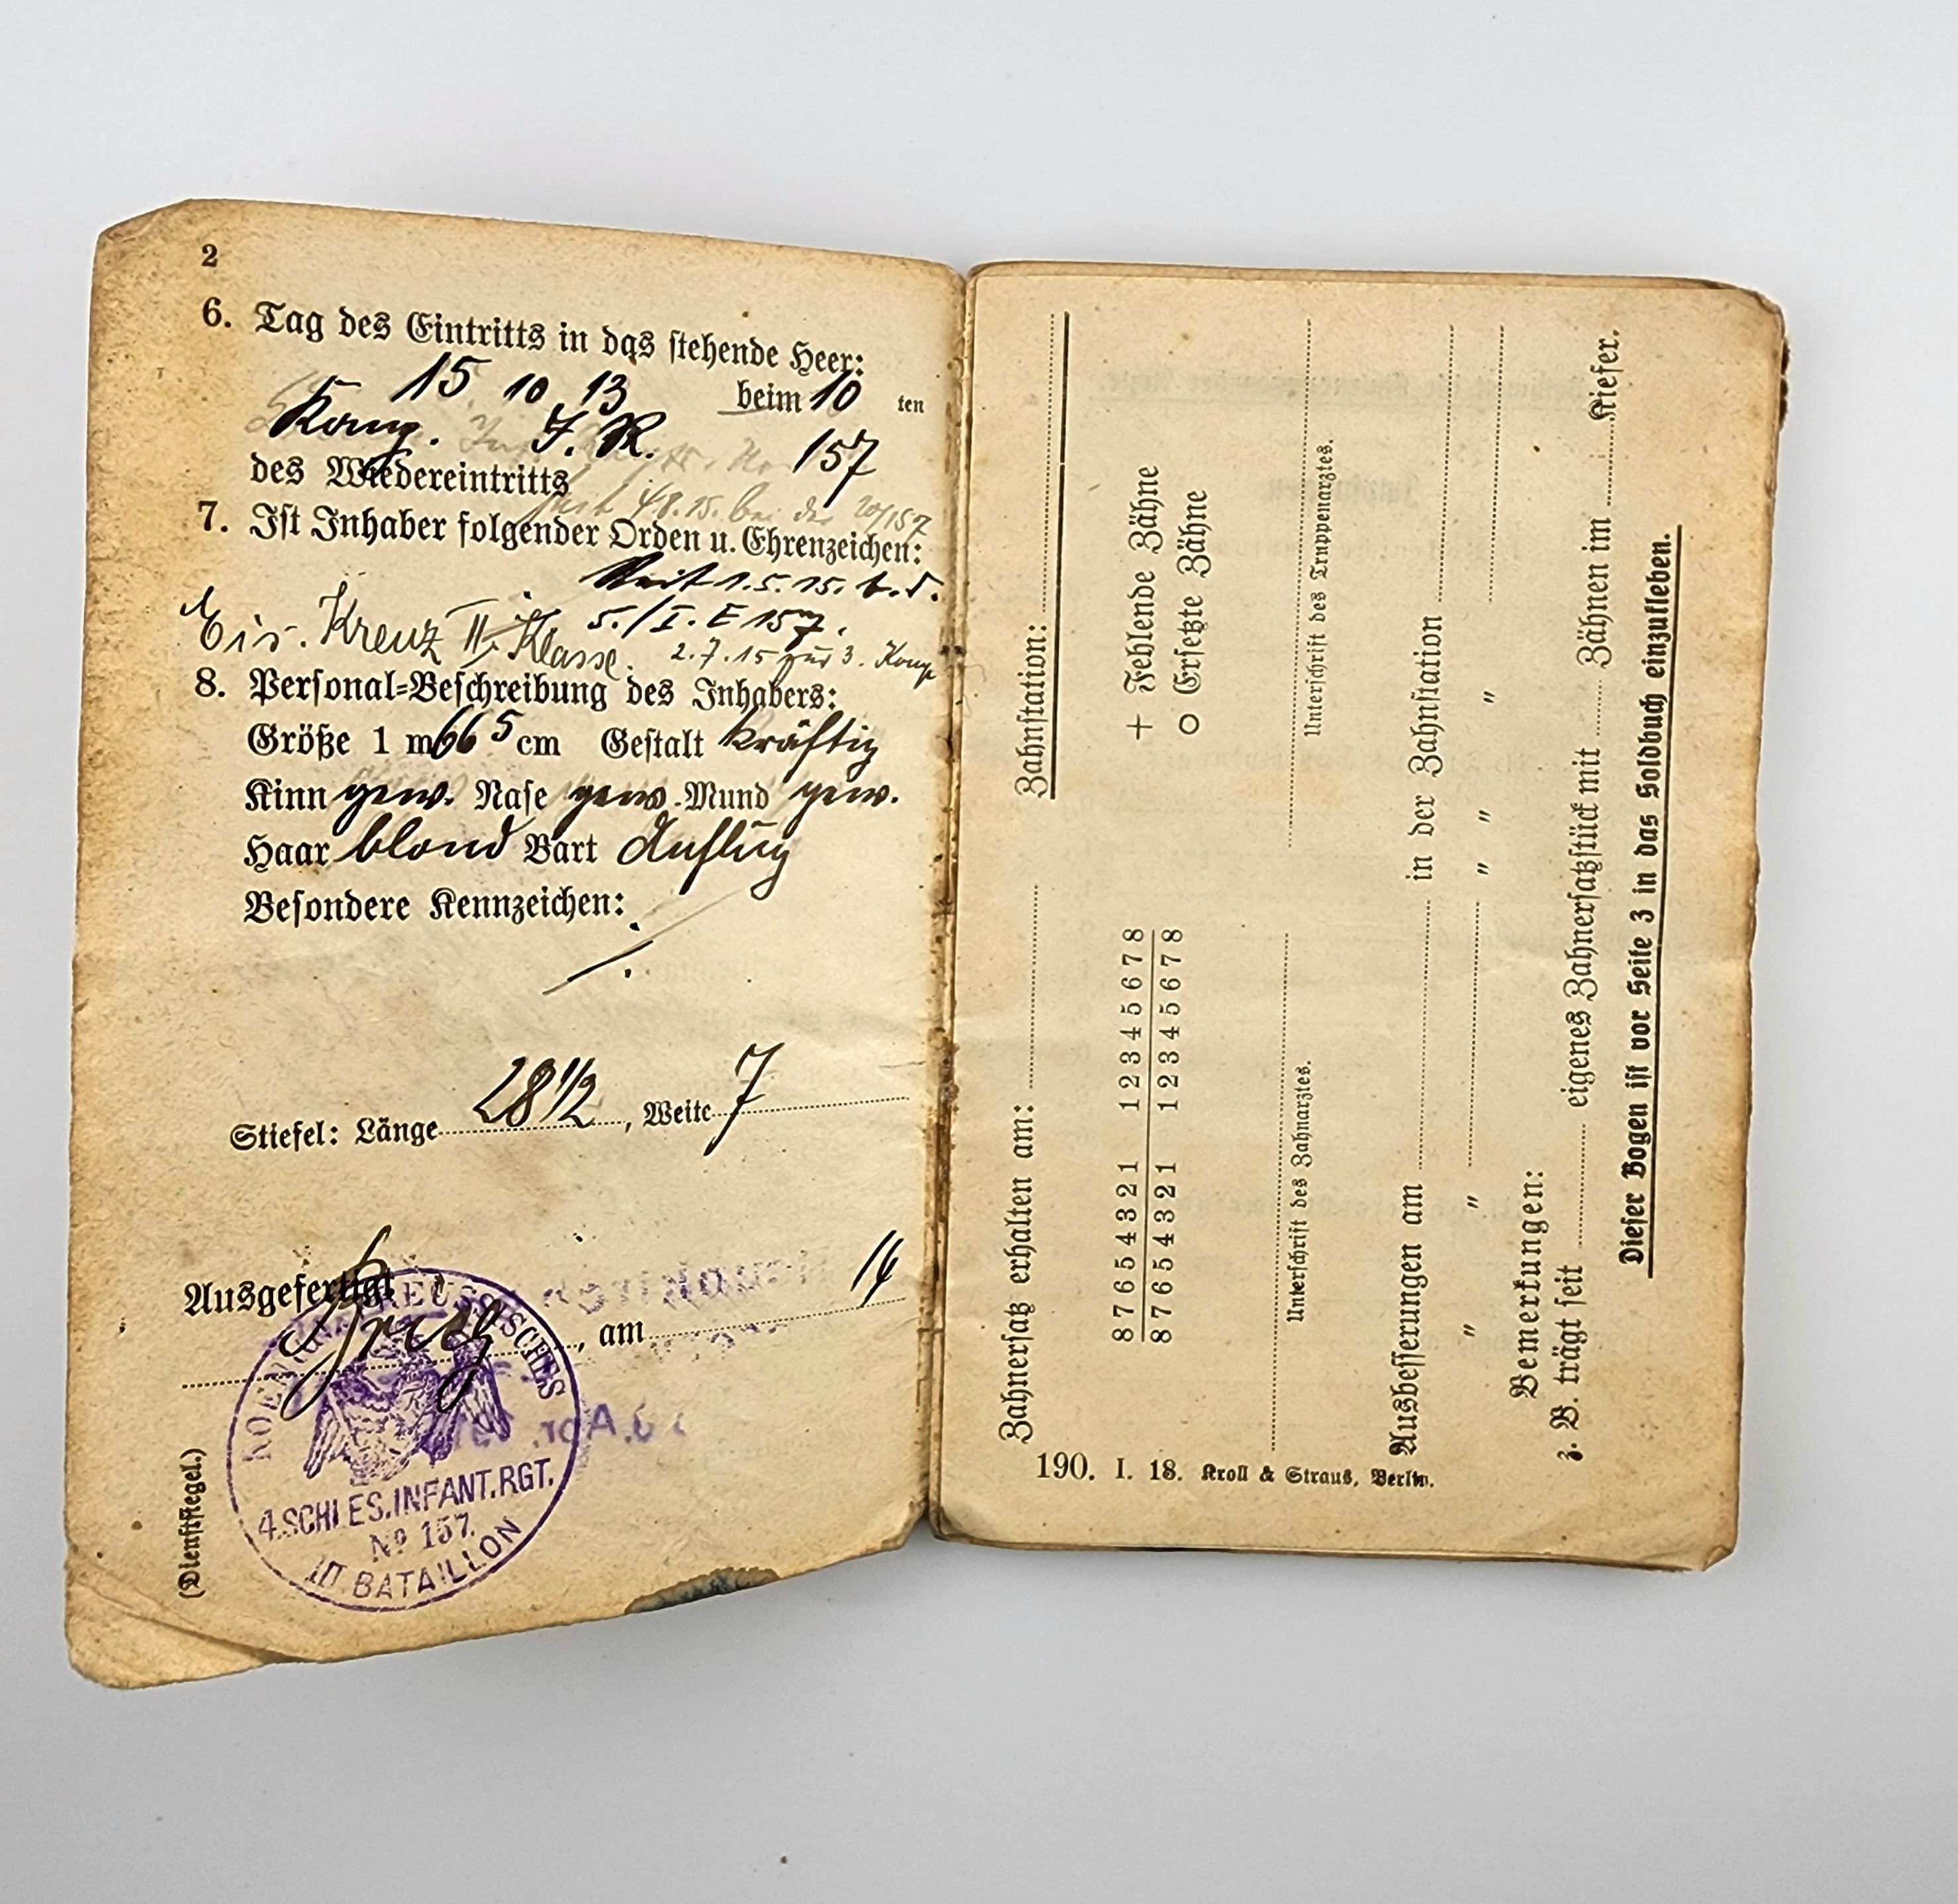 2
6. Tag des Eintritts in das stehende Heer:
15 10 13 beim 10 ten
Komp. I. R. 157
des Wiedereintritts
7. Ist Inhaber folgender Orden u. Ehrenzeichen:
Seit 1.5.15. b. d.
5./I. E 157.
Eis. Kreuz II. Klasse.
2.7.15 zur 3. Komp
8. Personal-Beschreibung des Inhabers:
Größe 1 m 66 5 cm Gestalt kräftig
Kinn gew. Nase gew. Mund gew.
Haar blond Bart Anflug
Besondere Kennzeichen:
Stiefel: Länge 28 1/2, Weite 7
Ausgefertigt
Brieg, am 14
(Dienstsiegel.)
KOENIGL. PREUSSISCHES
4. SCHLES. INFANT. RGT.
No 157.
III BATAILLON
Zahnersatz erhalten am: Zahnstation:
8 7 6 5 4 3 2 1 1 2 3 4 5 6 7 8 + Fehlende Zähne
8 7 6 5 4 3 2 1 1 2 3 4 5 6 7 8 o Ersetzte Zähne
Unterschrift des Zahnarztes. Unterschrift des Truppenarztes.
Ausbesserungen am in der Zahnstation
" " " "
"
Bemerkungen:
z. B. trägt seit eigenes Zahnersatzstück mit Zähnen im Kiefer.
Dieser Bogen ist vor Seite 3 in das Soldbuch einzukleben.
190. I. 18. Kroll & Straus, Berlin.